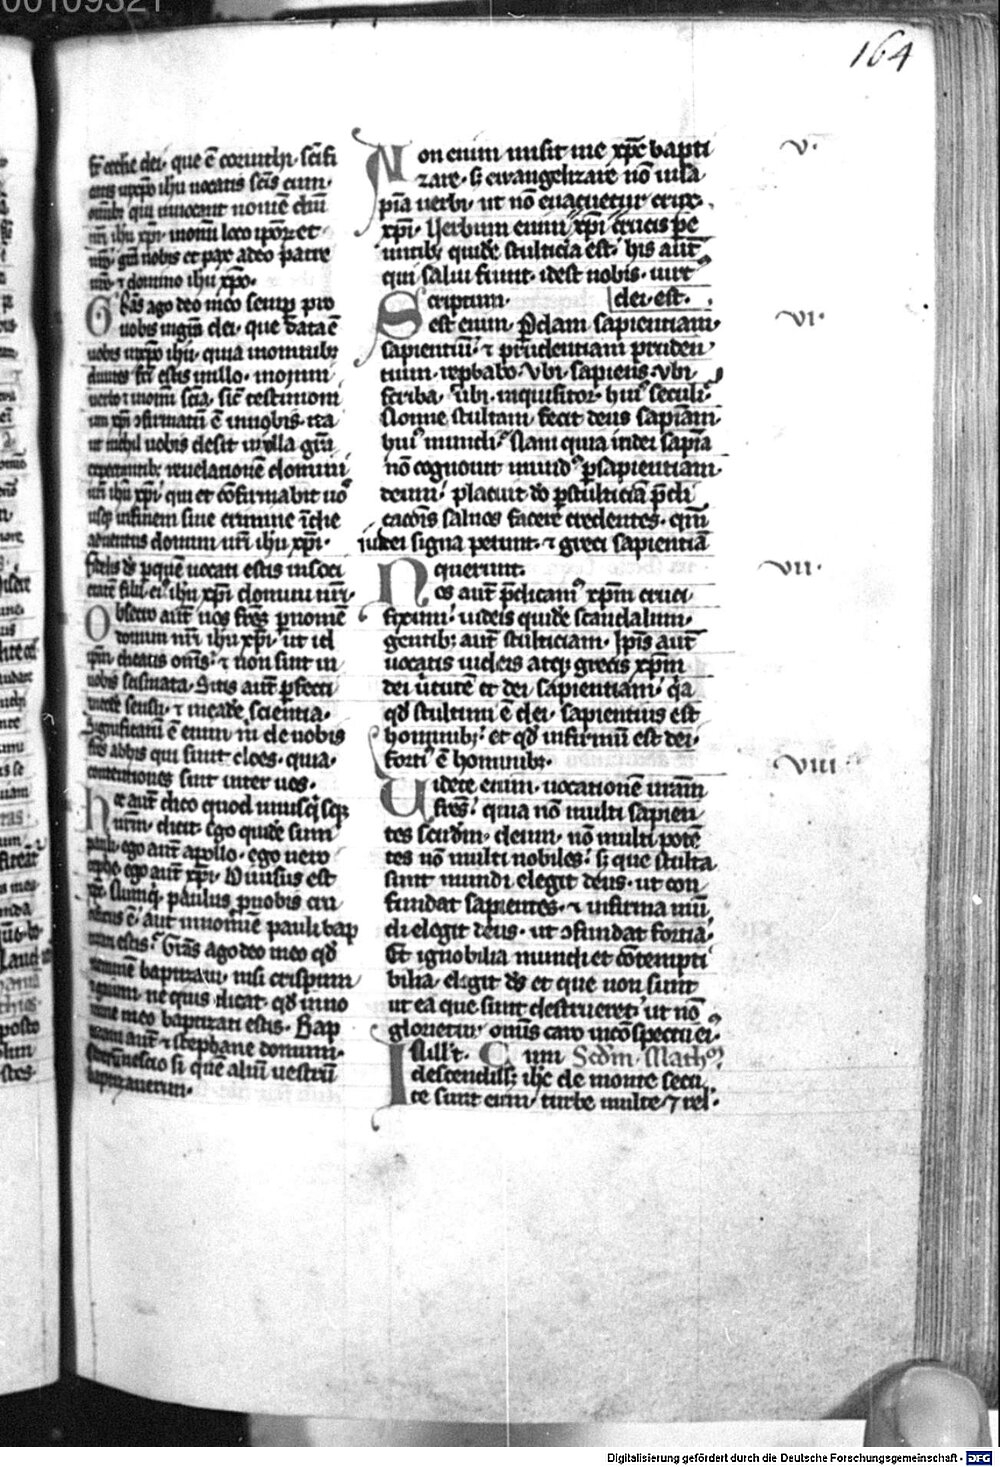 00109321
164
fr̄ eccl̄ie dei· que ē corinthi· sc̄ifi
catis in xp̄o ihū uocatis sc̄is cum·
omīb; qui inuocant nomē dn̄i
nr̄i ihū xp̄i· in om̄i loco ip̄oꝝ et
nr̄o· gr̄a uobis et pax a deo patre
nr̄o ⁊ domino ihū xp̄o·
Gr̄as ago deo meo semp̄ pro
uobis in gr̄a dei· que data ē
uobis in xp̄o ihū· quia in omnib;
diuites fc̄i estis in illo· in omni
uerbo ⁊ in om̄i scīa· sic̄ testimoni
um xp̄i ɔfirmatū ē in uobis· ita
ut nichil uobis desit in ulla gr̄a
expectantib; reuelationē domini
nr̄i ihū xp̄i· qui et cōfirmabit uoˢ
usq; in finem sine crimine ī die
aduentus domini nr̄i ihū xp̄i·
fidelis dˢ p quē uocati estis in soci
etatē filii eiˀ ihū xp̄i domini nr̄i·
Obsecro aut̄ uos fr̄es p nomē
domini nr̄i ihū xp̄i· ut id
ip̄m dicatis om̄s· ⁊ non sint in
uobis scismata· Sitis aut̄ p̱fecti
in eodē sensu· ⁊ in eadē scientia·
Significatū ē enim m̄ de uobis
fr̄es ab his qui sunt cloes· quia·
contentiones sunt inter uos·
Hoc aut̄ dico quod unusq̄sq;
ur̄m· dicit· Ego quidē sum
pauli· ego aut̄ apollo· ego uero
cephe· ego aut̄ xp̄i· Diuisus est
xp̄c· Nunq̄ paulus p uobis cru
cifixus ē· aut in nomīe pauli bap
tizati estis· Gr̄as ago deo meo qd̄
neminē baptizaui· nisi crispum
⁊ gaium· ne quis dicat· qd̄ in no
mine meo baptizati estis· Bap
tizaui aut̄ ⁊ stephane domum·
Ceterū nescio si quē aliū uestrū
baptizauerim·
Non enim misit me xp̄c bapti
zare· s; ewangelizare nō in sa
pīa uerbi· ut nō euacuetur crux·
xp̄i· Uerbum enim xp̄i crucis pe
untib; quidē stulticia est· his aut̄
qui salui fiunt· idest nobis· uirtˀ
dei est·
Scriptum·
est enim· P̱dam sapientiam·
sapientiū· ⁊ prudentiam pruden
tium· rep̱babo· Vbi sapiens· vbi
scriba· ubi inquisitor· huiˀ seculi·
Nonne stultam fecit deus sapīam
huiˀ mundi· Nam quia in dei sapīa
nō cognouit mundˀ p̱ sapientiam
deum· placuit dō p̱ stulticiā p̄di
cacōis saluos facere credentes· qm̄
iudei signa petunt· ⁊ greci sapientiā
querunt·
Nos aut̄ p̄dicamˀ xp̄m cruci
fixum· iudeis quidē scandalum·
gentib; aut̄ stulticiam· Ip̄is aut̄
uocatis iudeis atq; grecis xp̄m
dei u̇tutē et dei sapientiam· q̇a
qd̄ stultum ē dei· sapientius est
hominib;· et qd̄ infirmū est dei·
fortiˀ ē hominib;·
Uidete enim· uocationē uram̄
fr̄es· quia nō multi sapien
tes scd̄m· carnem· nō multi potē
tes nō multi nobiles· s; que stulta
sunt mundi elegit deus· ut con
fundat sapientes· ⁊ infirma mū
di elegit deus· ut ɔfundat fortia·
Et ignobilia mundi et cōtempti
bilia· elegit dˢ et que non sunt
ut ea que sunt destrueret· ut nō
glorietur omnis caro in cōspectu eiˀ·
In ill̄ t· Cum Scd̄m Matheˀ
descendiss; ihc̄ de monte secu
te sunt eum turbe multe ⁊ rel·
v·
vi·
vii·
viii
Digitalisierung gefördert durch die Deutsche Forschungsgemeinschaft - DFG